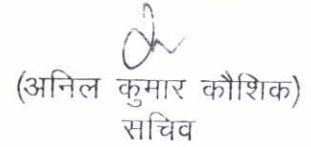 (अनिल कुमार कौशिक)
सचिव